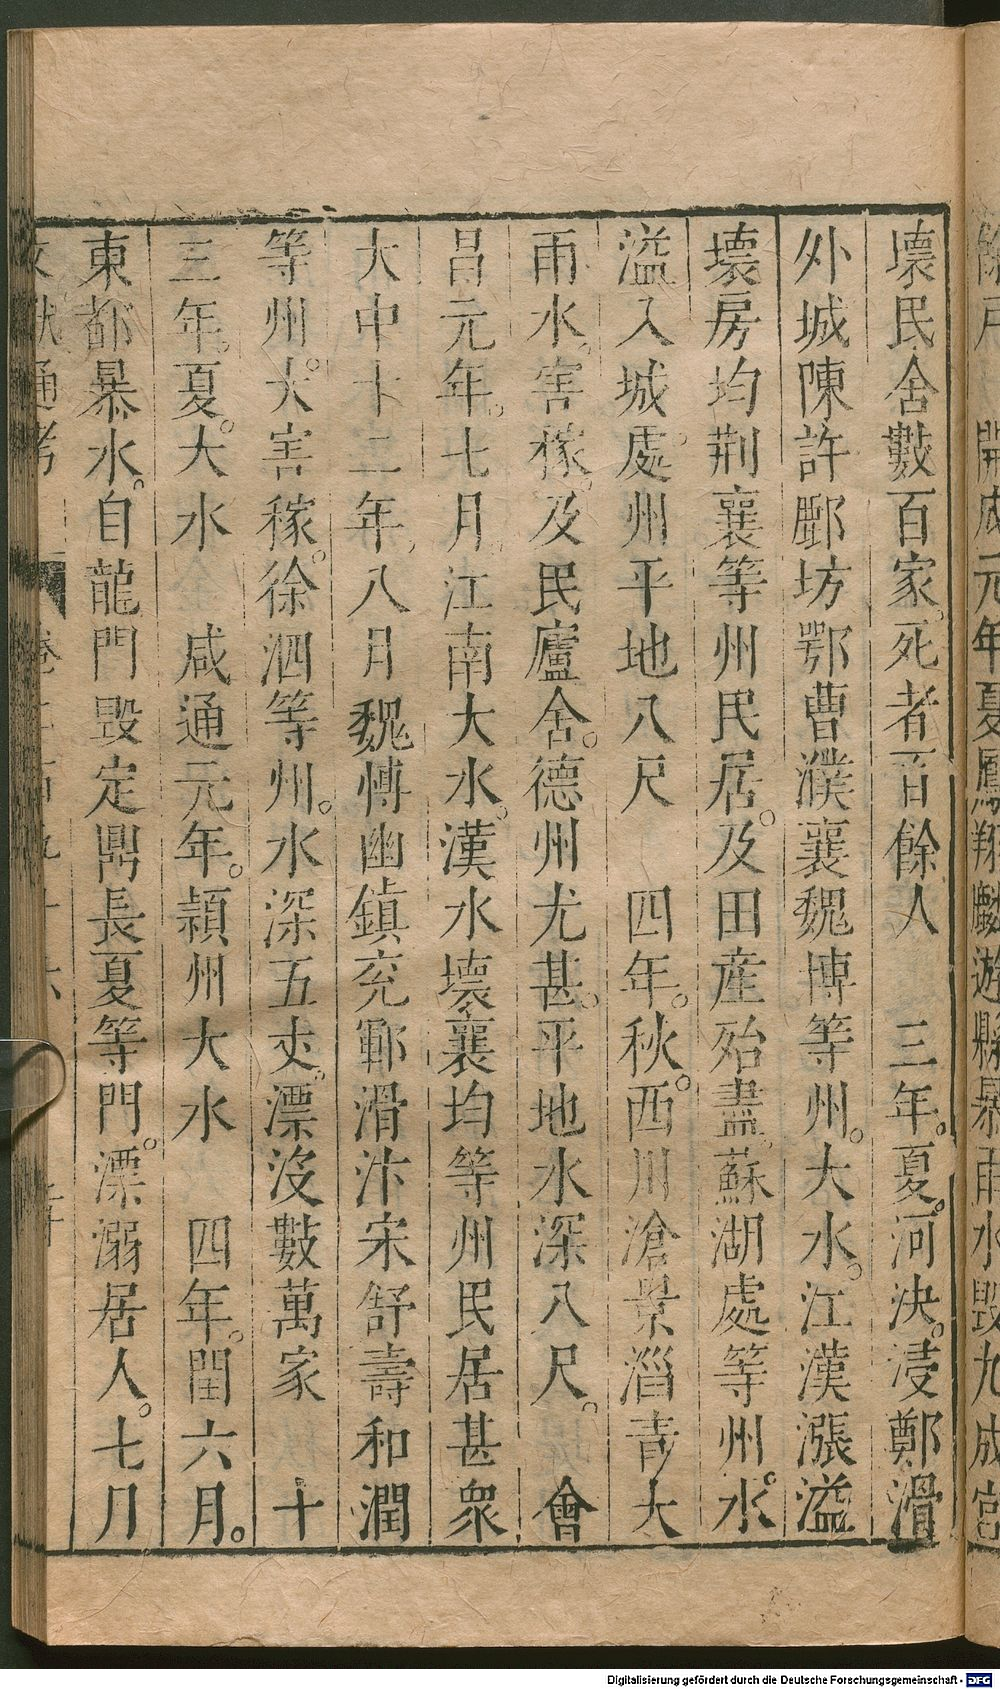 餘戶　開成元年夏鳳翔麟遊縣暴雨水毀九成宮
壞民舍數百家。死者百餘人　三年。夏。河決。浸鄭滑
外城陳許鄜坊鄂曹濮襄魏博等州。大水。江漢漲溢
壞房均荆襄等州民居。及田産殆盡。蘇湖處等州。水
溢入城。處州平地八尺　四年。秋。西川滄景淄青大
雨水。害稼。及民廬舍。德州尤甚。平地水深八尺。　會
昌元年。七月。江南大水。漢水壞襄均等州民居甚衆
大中十二年。八月魏愽幽鎮兖鄆滑汴宋舒壽和潤
等州。大害稼。徐泗等州。水深五丈。漂沒數萬家　十
三年。夏。大水　咸通元年。潁州大水　四年。閏六月。
東都暴水。自龍門毀定鼎長夏等門。漂溺居人。七月
文獻通考　卷二百九十六
Digitalisierung gefördert durch die Deutsche Forschungsgemeinschaft - DFG